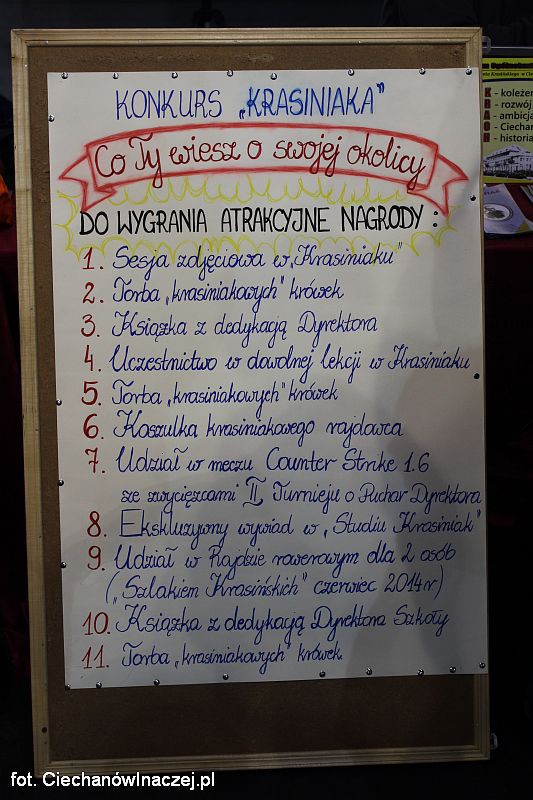 KONKURS „KRASINIAKA”
Co Ty wiesz o swojej okolicy
DO WYGRANIA ATRAKCYJNE NAGRODY :
1. Sesja zdjęciowa w „Krasiniaku”
2. Torba „krasiniakowych” krówek
3. Książka z dedykacją Dyrektora
4. Uczestnictwo w dowolnej lekcji w Krasiniaku
5. Torba „krasiniakowych” krówek
6. Koszulka krasiniakowego rajdowca
7. Udział w meczu Counter Strike 1.6
ze zwycięzcami II Turnieju o Puchar Dyrektora
8. Ekskluzywny wywiad w „Studiu Krasiniak”
9. Udział w Rajdzie rowerowym dla 2 osób
(„Szlakiem Krasińskich” czerwiec 2014r)
10. Książka z dedykacją Dyrektora Szkoły
11. Torba „krasiniakowych” krówek.
K - koleżeń
R - rozwój
A - ambicja
- Ciechan
- historia
fot. CiechanówInaczej.pl